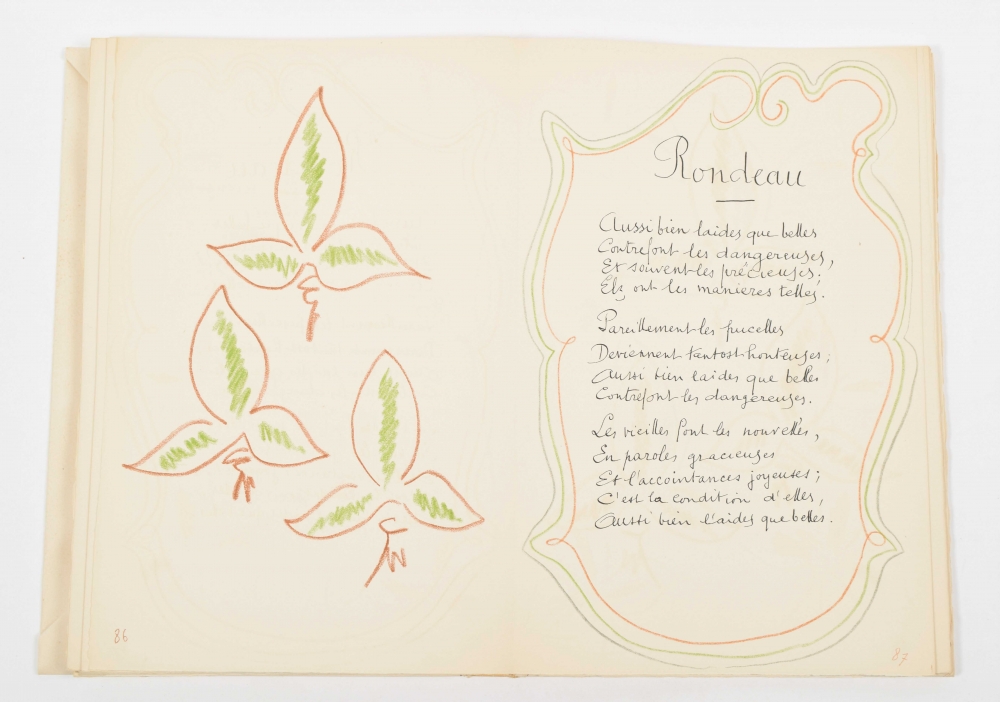 86
Rondeau
Aussi bien laides que belles
Contrefont les dangereuses,
Et souvent les précieuses.
Elz ont les manières telles.
Pareillement les pucelles
Deviennent tantost honteuses;
Aussi bien laides que belles
Contrefont les dangereuses.
Les vieilles font les nouvelles,
En paroles gracieuses
Et l'accointances joyeuses;
C'est la condition d'elles,
Aussi bien l'aides que belles.
87